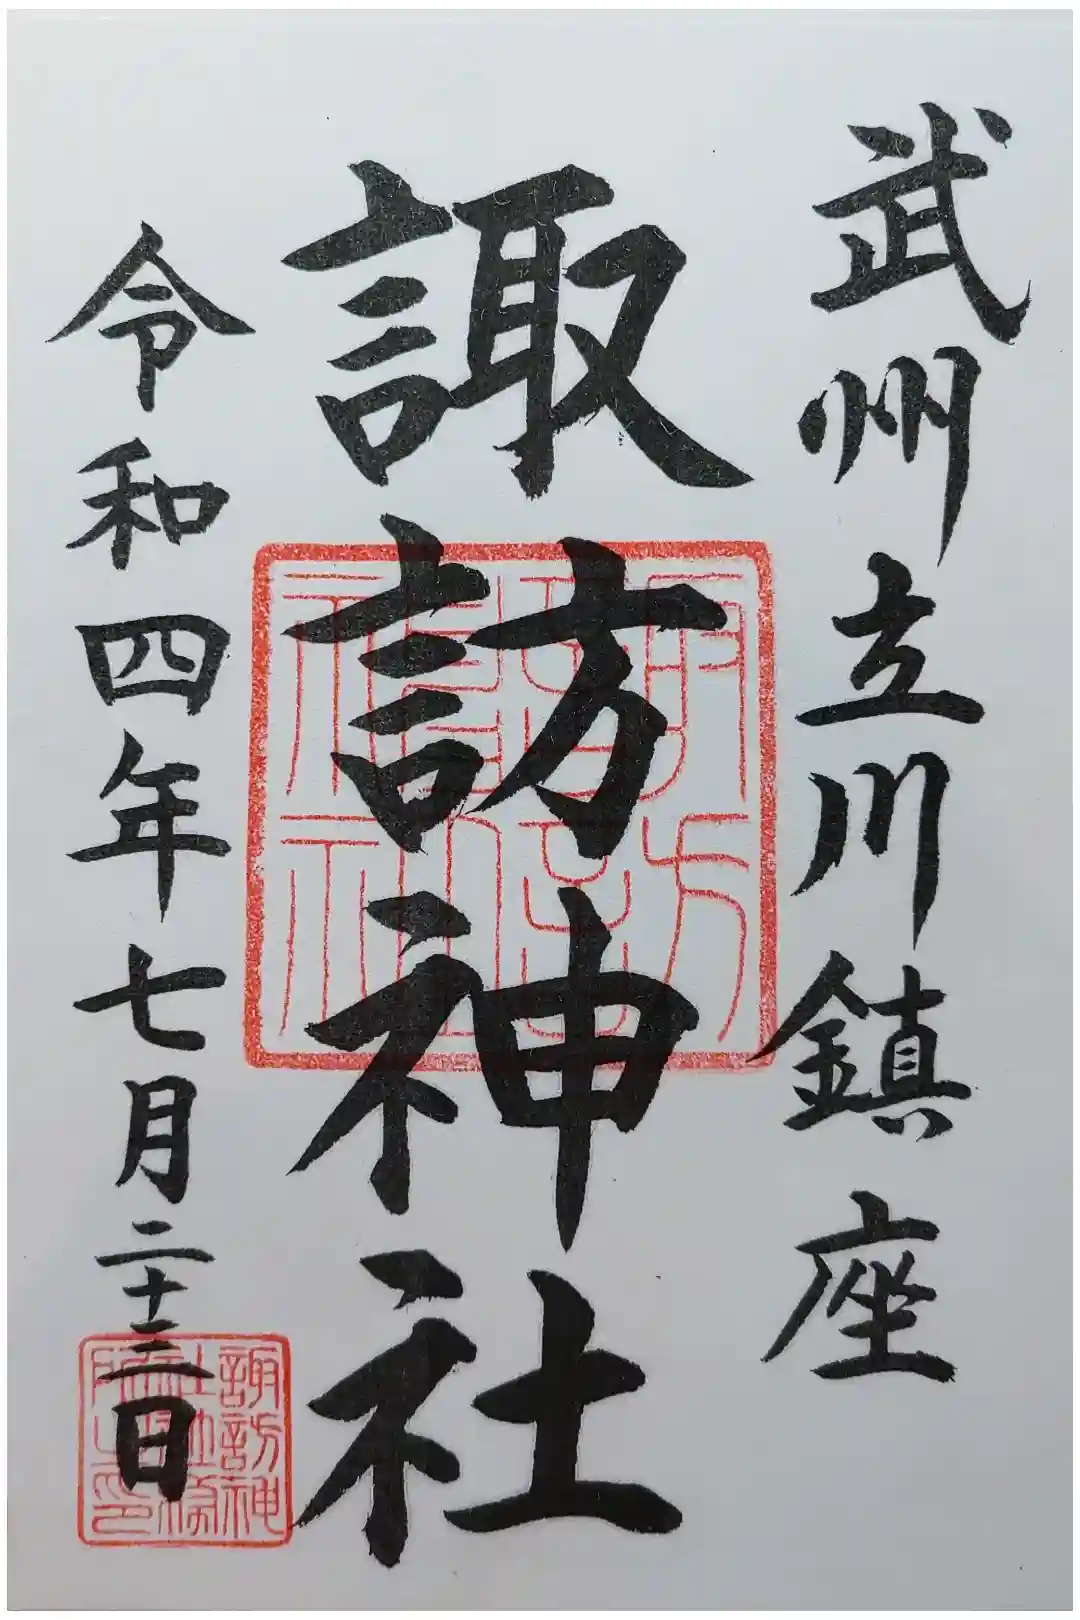 武州立川鎮座
諏訪神社
令和四年七月二十三日
諏訪神
社社務
所之印